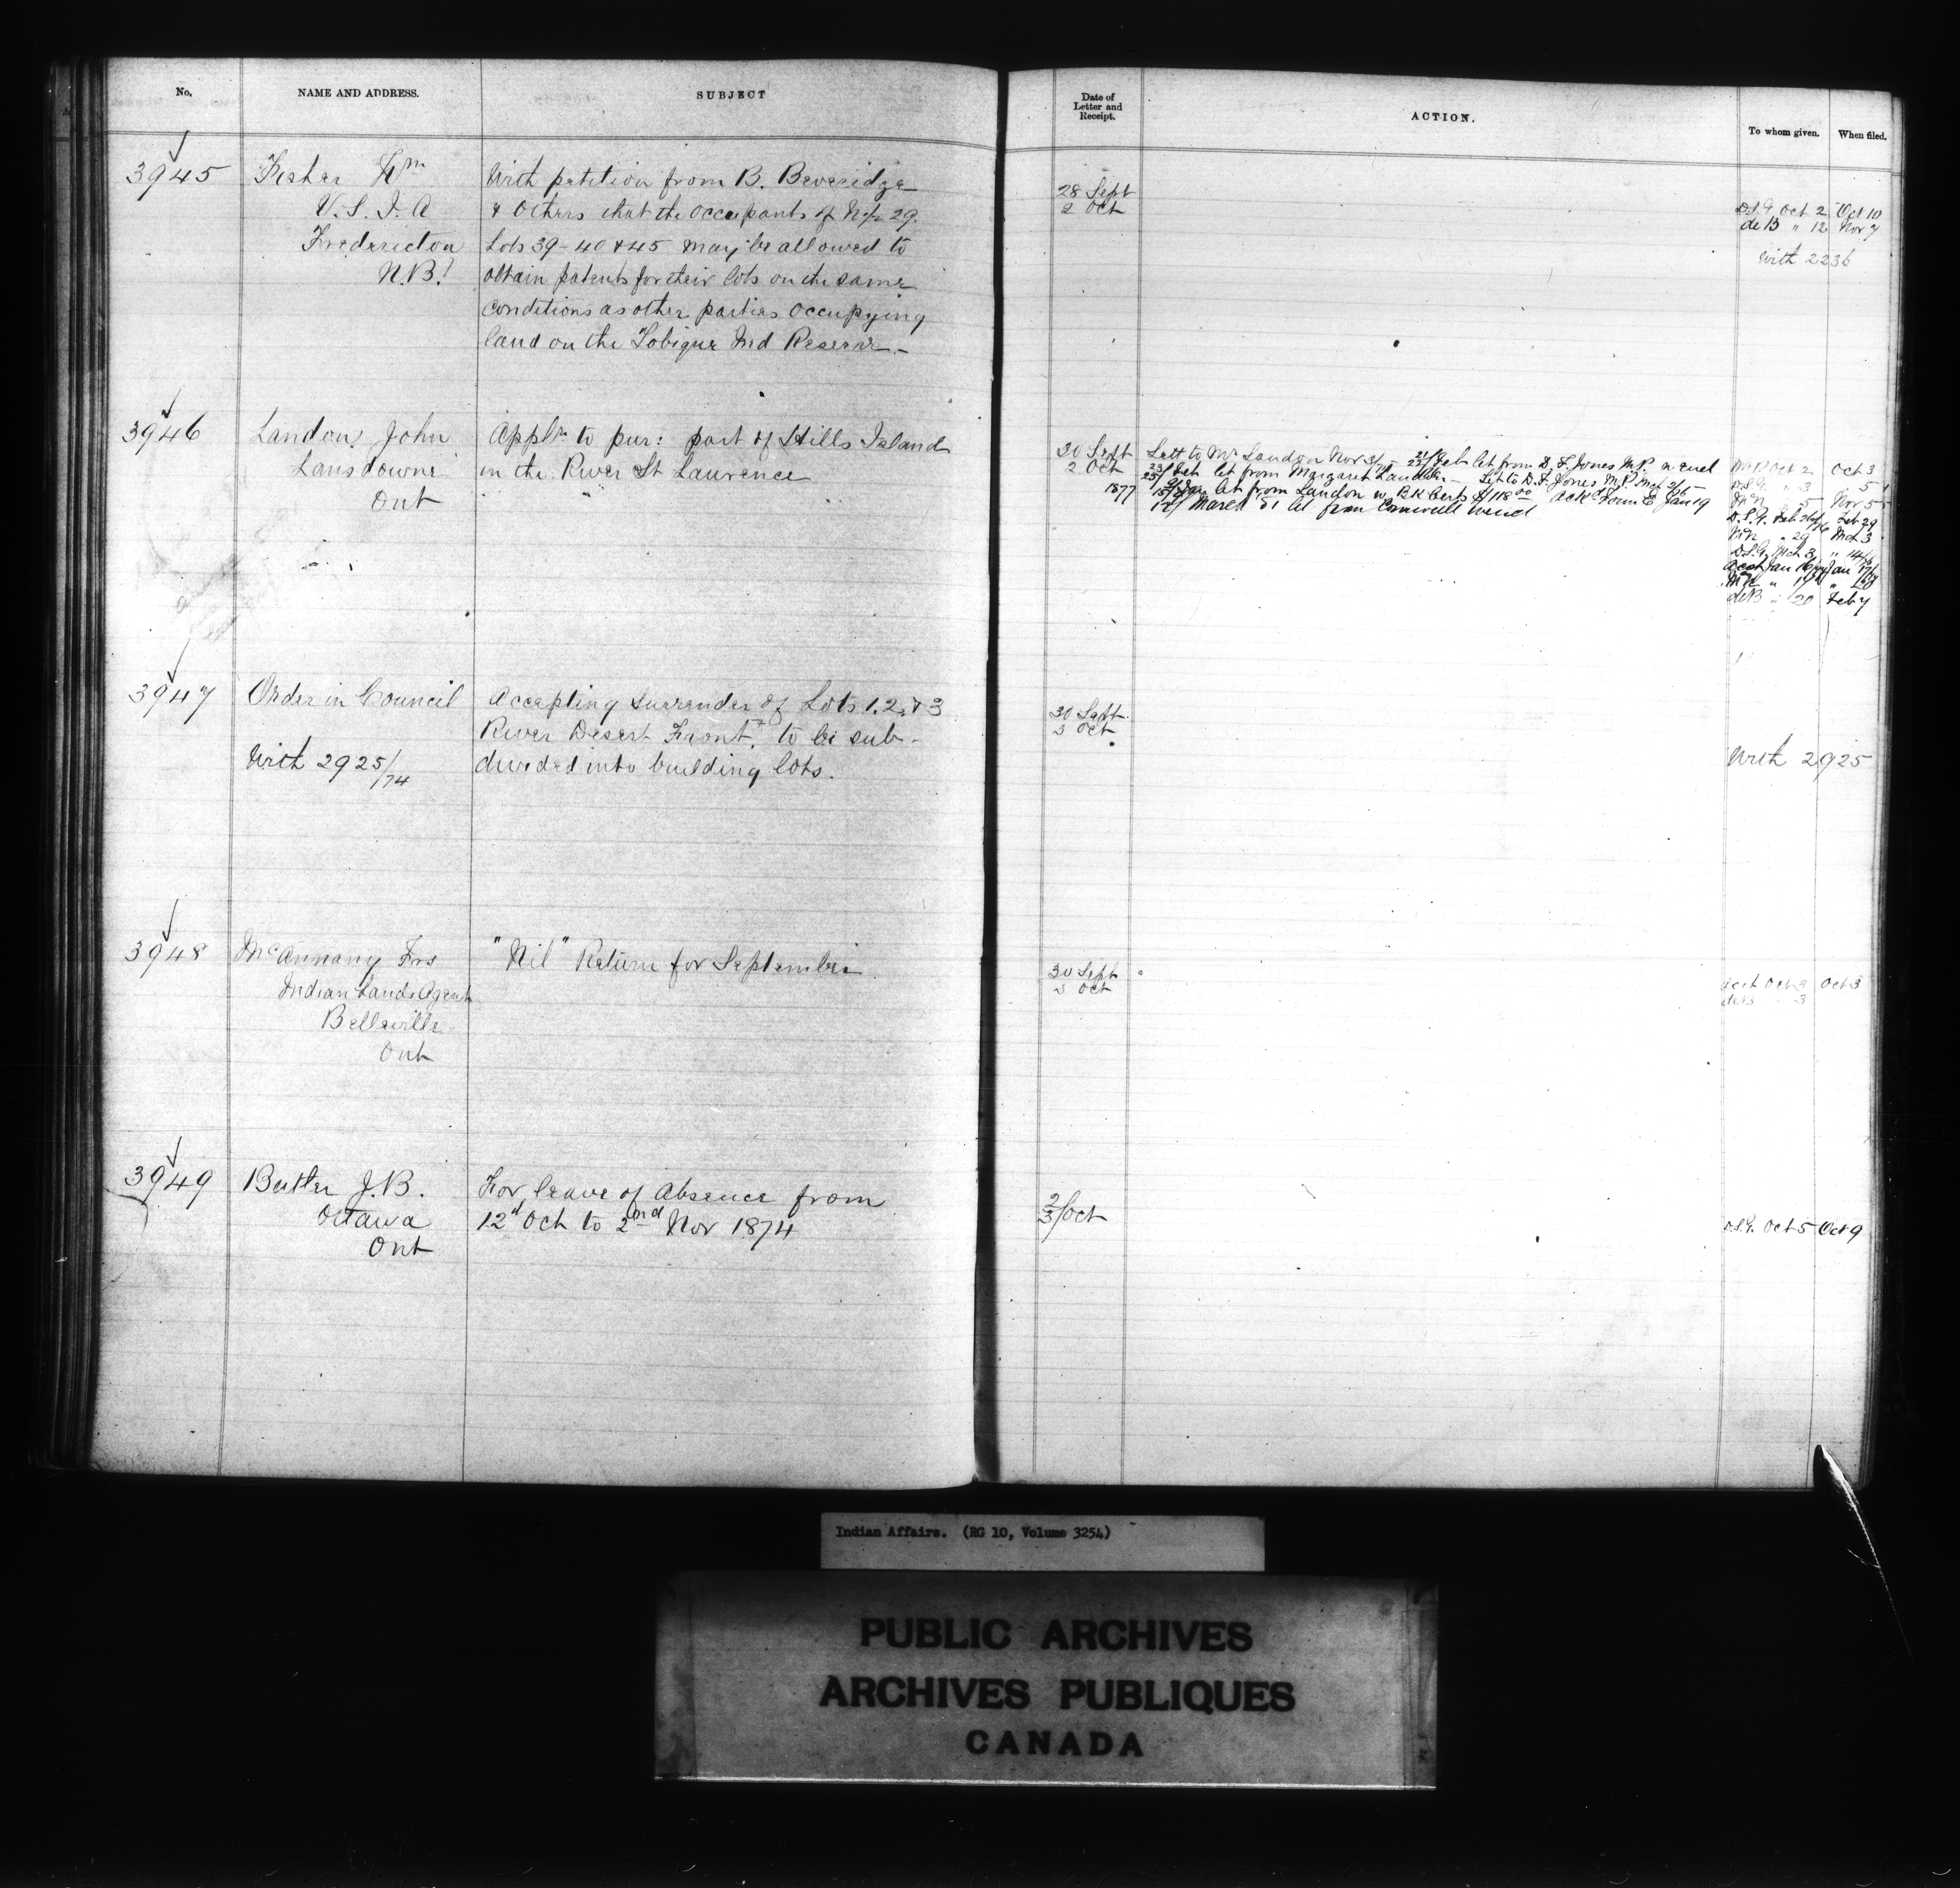 No. NAME AND ADDRESS. SUBJECT
3945 Fisher Wm With petition from B. Beveridge
V. S. I. A & Others that the occupants of No/s 29.
Fredericton Lots 39-40 & 45 may be allowed to
N.B. obtain patents for their lots on the same
conditions as other parties occupying
land on the Tobique Ind Reserve.-
3946 Landon John Appln to pur: part of Hills Island
Lansdowne in the River St Laurence
Ont
3947 Order in Council Accepting Surrender of Lots 1. 2. & 3
River Desert Front, to be sub-
With 2925/74 divided into building lots.
3948 McAnnany Frs "Nil" Return for September
Indian Lands Agent
Belleville
Ont
3949 Butler J.B. For leave of Absence from
Ottawa 12th Oct to 2nd Nov 1874
Ont
Date of Letter and Receipt. ACTION. To whom given. When filed.
28 Sept
2 Oct
D.S.G. Oct 2 Oct 10
deB " 12 Nov 7
With 2236
30 Sept Lett to Mr Landon Nov 3/75 Feb let from D. F. Jones M.P.
2 Oct let from Margaret Landon - Let to D. F. Jones M.P. Mch
1877 let from Landon w. BK Certs $118.00 Ackd Form E Jan 19
March let from Cornwall
Oct 2 Oct 3
D.S.G. " 3 " 5
" 5 Nov 5
D.S.G. Feb 26 Feb 29
" 29 Mch 3
D.S.G. Mch 3 " 14
Acct Jan Jan 17
deB " 20 Feb 7
30 Sept
3 Oct
With 2925
30 Sept
3 Oct
Acct Oct 3 Oct 3
deB " 3
2/3 Oct
D.S.G. Oct 5 Oct 9
Indian Affairs. (RG 10, Volume 3254)
PUBLIC ARCHIVES
ARCHIVES PUBLIQUES
CANADA